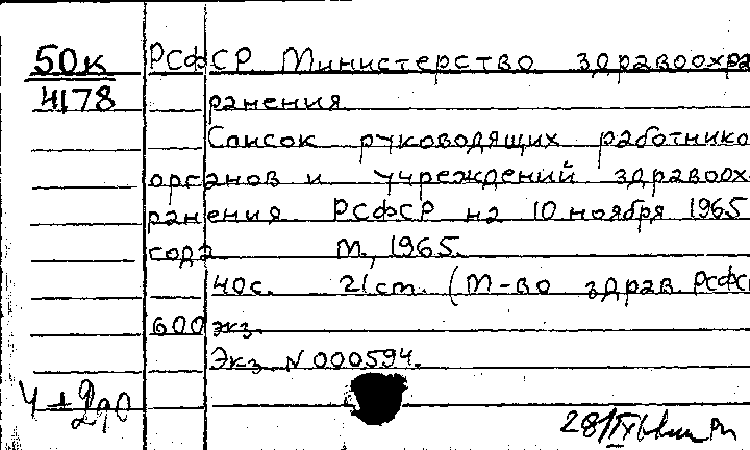 50к РСФСР Министерство здравоохра
4178 ранения
Список руководящих работнико
органов и учреждений здравоох-
ранения РСФСР на 10 ноября 1965
года М., 1965.
40с. 21см. (М-во здрав. РСФС
600 экз.
Экз N 000594.
28/IX